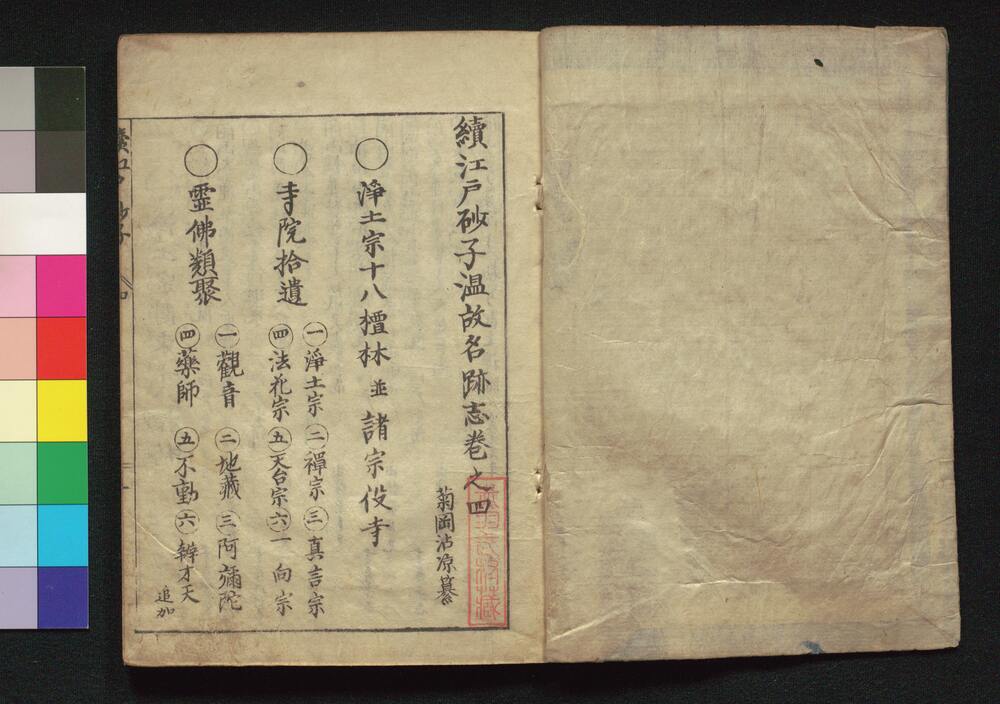 續江戸砂子温故名跡志巻之四
菊岡沾凉纂
○浄土宗十八檀林並諸宗役寺
○寺院拾遺
㊀浄土宗㊁禪宗㊂真言宗
㊃法花宗㊄天台宗㊅一向宗
○霊佛類聚
㊀觀音㊁地蔵㊂阿彌陀
㊃藥師㊄不動㊅辨才天
追加
續江戸砂子
四